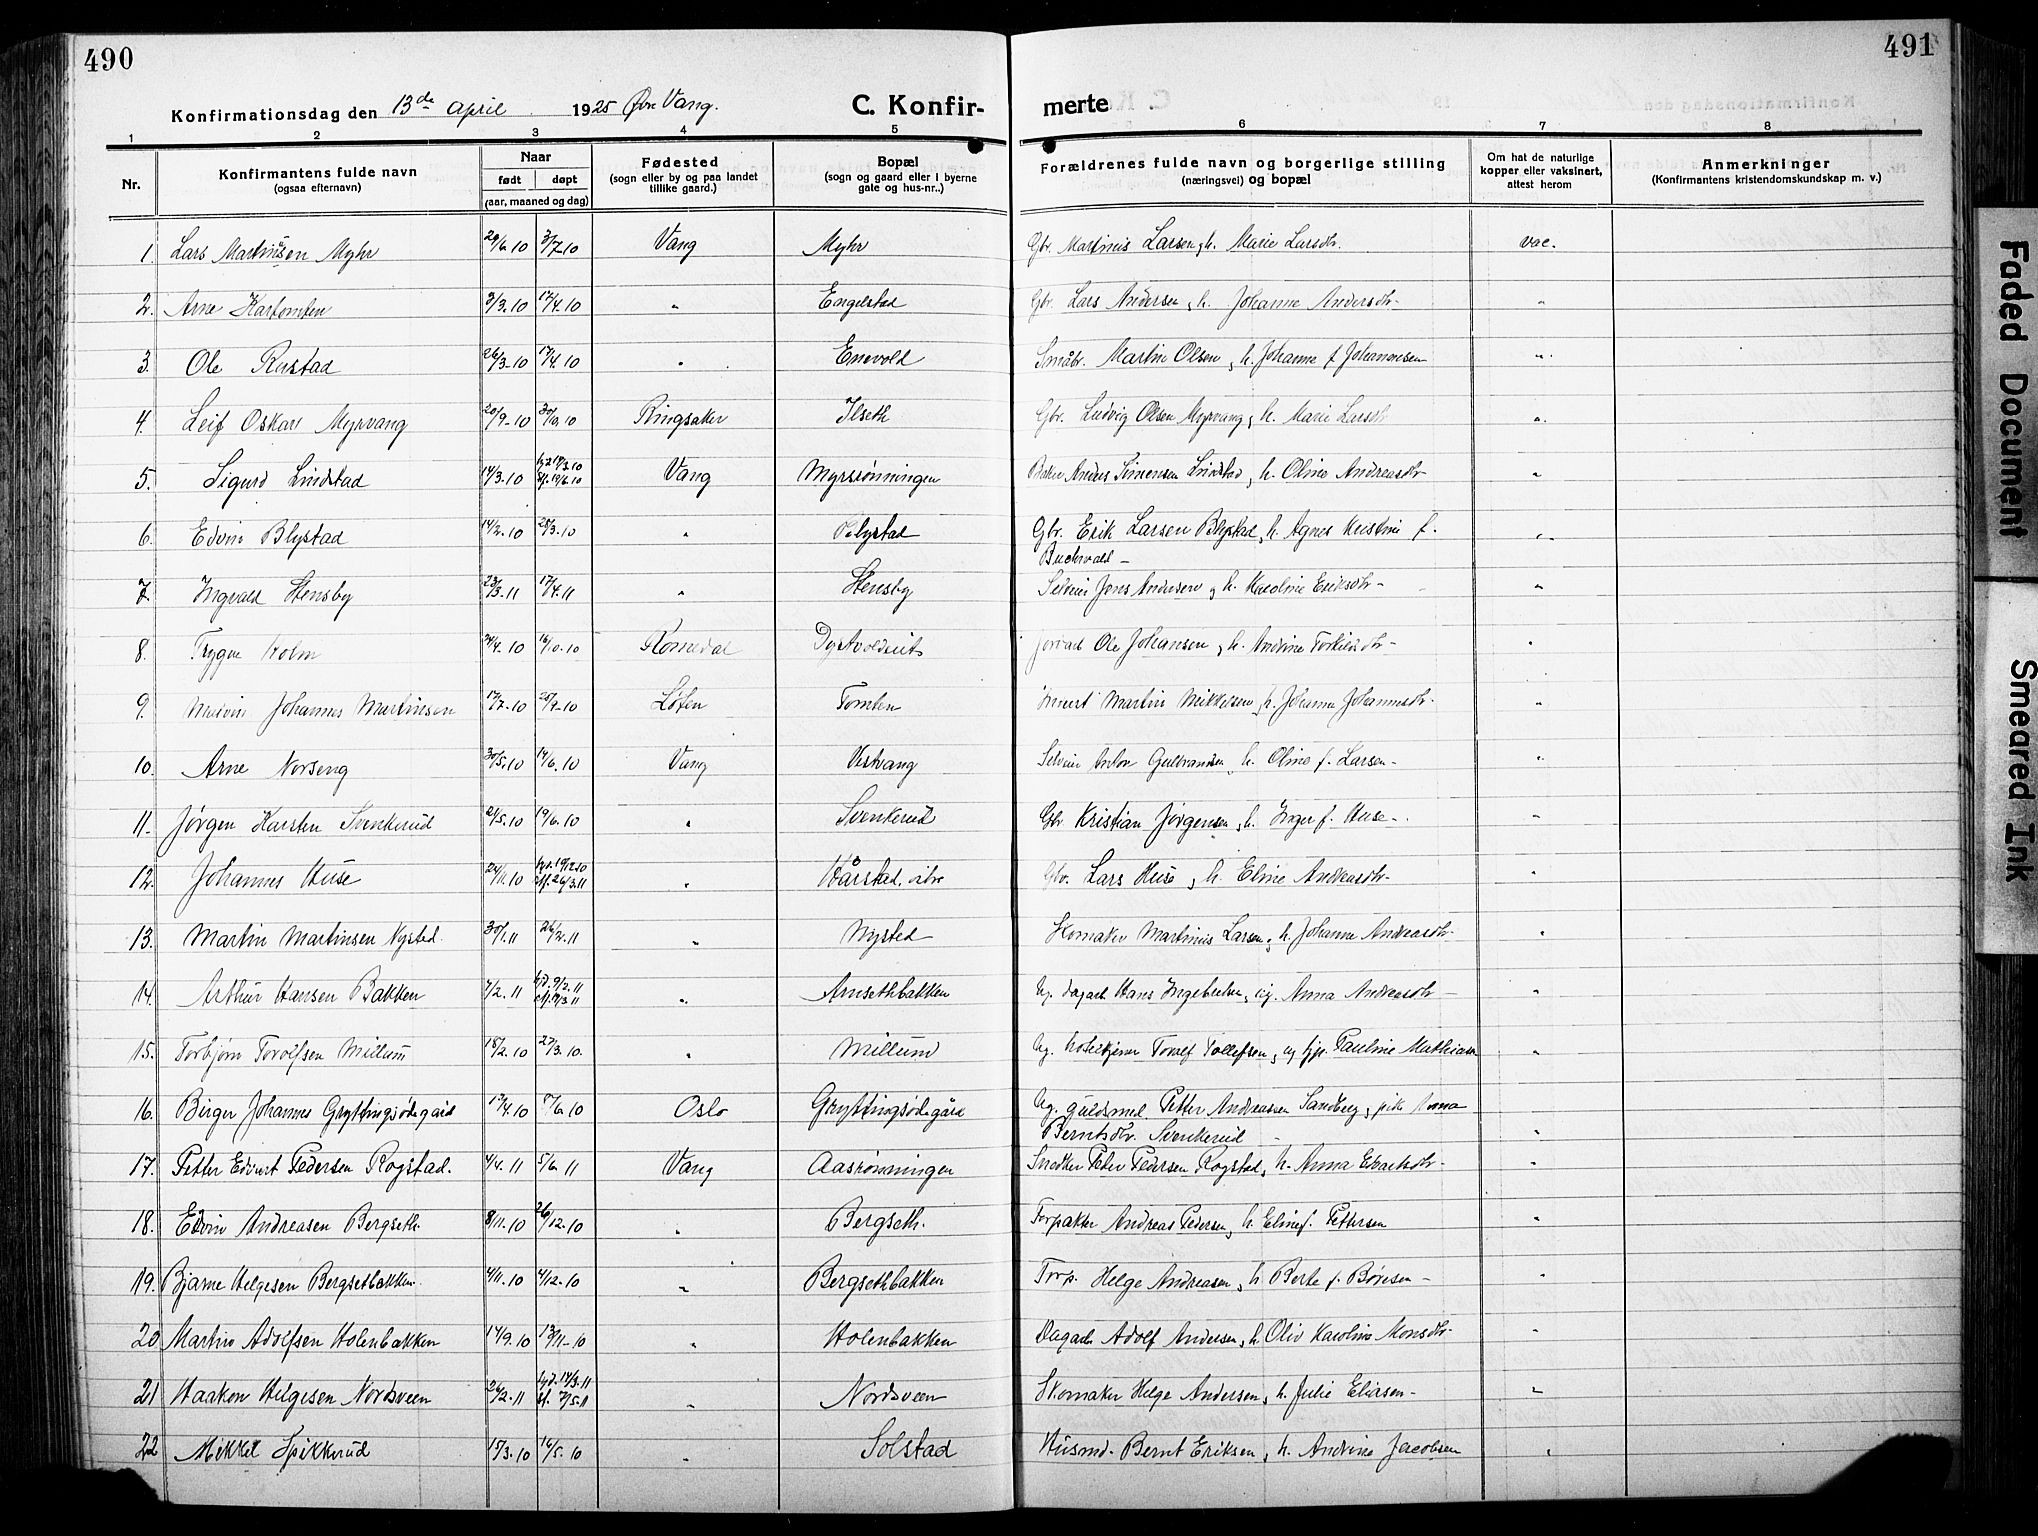 490
491
Konfirmationsdag den 13de april 1925 Øvre Vang.
C. Konfir-
merte
1 2 3 4 5 6 7 8
Nr.
Konfirmantens fulde navn
(ogsaa efternavn)
Naar
født døpt
(aar, maaned og dag)
Fødested
(sogn eller by og paa landet
tillike gaard.)
Bopæl
(sogn og gaard eller i byerne
gate og hus-nr..)
Forældrenes fulde navn og borgerlige stilling
(næringsvei) og bopæl
Om hat de naturlige
kopper eller vaksinert,
attest herom
Anmerkninger
(Konfirmantens kristendomskundskap m. v.)
1. Lars Martinsen Myhr 29/6.10 3/7.10 Vang Myhr Gbr. Martinus Larsen, h. Marie Larsdtr. vac.
2. Arne Kartomten 3/3.10 17/4.10 " Engelstad Gbr. Lars Andersen, h. Johanne Andersdtr- "
3. Ole Rustad 26/3-10 17/4.10 " Enevold Småbr. Martin Olsen, h. Johanne f. Johannesen "
4. Leif Oskar Myrvang 20/9-10 30/10.10 Ringsaker Ilseth Gbr. Ludvig Olsen Myrvang, h. Marie Larsdtr "
5. Sigurd Lindstad 14/3.10 Vang Myrrønningen Anders Simensen Lindstad, h. Oline Andreasdtr "
6. Edvin Blystad 14/2.10 28/3.10 " Blystad Gbr. Erik Larsen Blystad, h. Agnes Kristine f.
Buchwald - "
7. Ingvald Stensby 23/3.11 17/4.11 " Stensby Selveier Jens Andersen, h. Karoline Eriksdtr- "
8. Trygve Holm 24/4.10 16/10.10 Romedal Jordarb. Ole Johansen, h. Andrine Torkildsdtr- "
9. Johannes Martinsen 17/7-10 25/9-10 Løten Tomten Martin Mikkelsen, h. Johanne Johannesdtr. "
10. Arne Norseng 30/5.10 14/6.10 Vang Vestvang Selveier Anton Gulbrandsen, h. Oline f. Larsen- "
11. Jørgen Karsten Svenkerud 21/5.10 19/6.10 " Svenkerud Gbr Kristian Jørgensen, h. Inger f. Huse-. "
12. Johannes Huse 24/11.10 hjd. 19/12.10
26/3.11 " Hårstad, øvre Gbr. Lars Huse, h. Eline Andreasdtr- "
13. Martin Martinsen Nysted. 30/1.11 26/2.11 " Nysted Skomaker Martinus Larsen, h. Johanne Andreasdtr. "
14. Arthur Hansen Bakken 7/2.11 hjd. 9/2.11
" Arnsethbakken Ug. dagarb. Hans Ingebretsen, ug. Anna Andreasdtr- "
15. Torbjørn Torolfsen Millum 18/2.10 27/3.10. " Millum Ug. Tollefsen, ug. tjp. Pauline Mathiasen "
16. Birger Johannes Gryttingsødegård 13/4.10 Oslo Gryttingsødegård Ug. guldsmed Petter Andreassen Sandberg, pike Anna
Berntsdtr. Svenkerud - "
17. Petter Edvart Pedersen Rogstad. 4/4.11 5/6.11 Vang Aasrønningen Snedker Peter Pedersen Rogstad, h. Anna Edvartsdtr- "
18. Edvin Andreasen Bergseth. 8/11.10 26/12.10 " Bergseth. Forpakter Andreas Pedersen, h. Eline f. Pettersen "
19. Bjarne Helgesen Bergsetbakken. 4/11.10 4/12.10 " Bergsethbakken Torp. Helge Andreasen, h. Berte f. Børesen - "
20 Martin Adolfsen Holenbakken 14/9.10 13/11-10 " Holenbakken Dagarb Adolf Andersen, h. Oliv Karoline Monsdtr- "
21 Haakon Helgesen Nordsveen 24/2.11 hjd. 14/3.11
bf. 7/5.11 " Nordsveen Skomaker Helge Andersen, h. Julie Eliasen- "
22 Mikkel Spikkerud 15/3.10 16/5.10 " Solstad Husmd. Bernt Eriksen, h. Andrine Jacobsen "
Faded Document
Smeared Ink